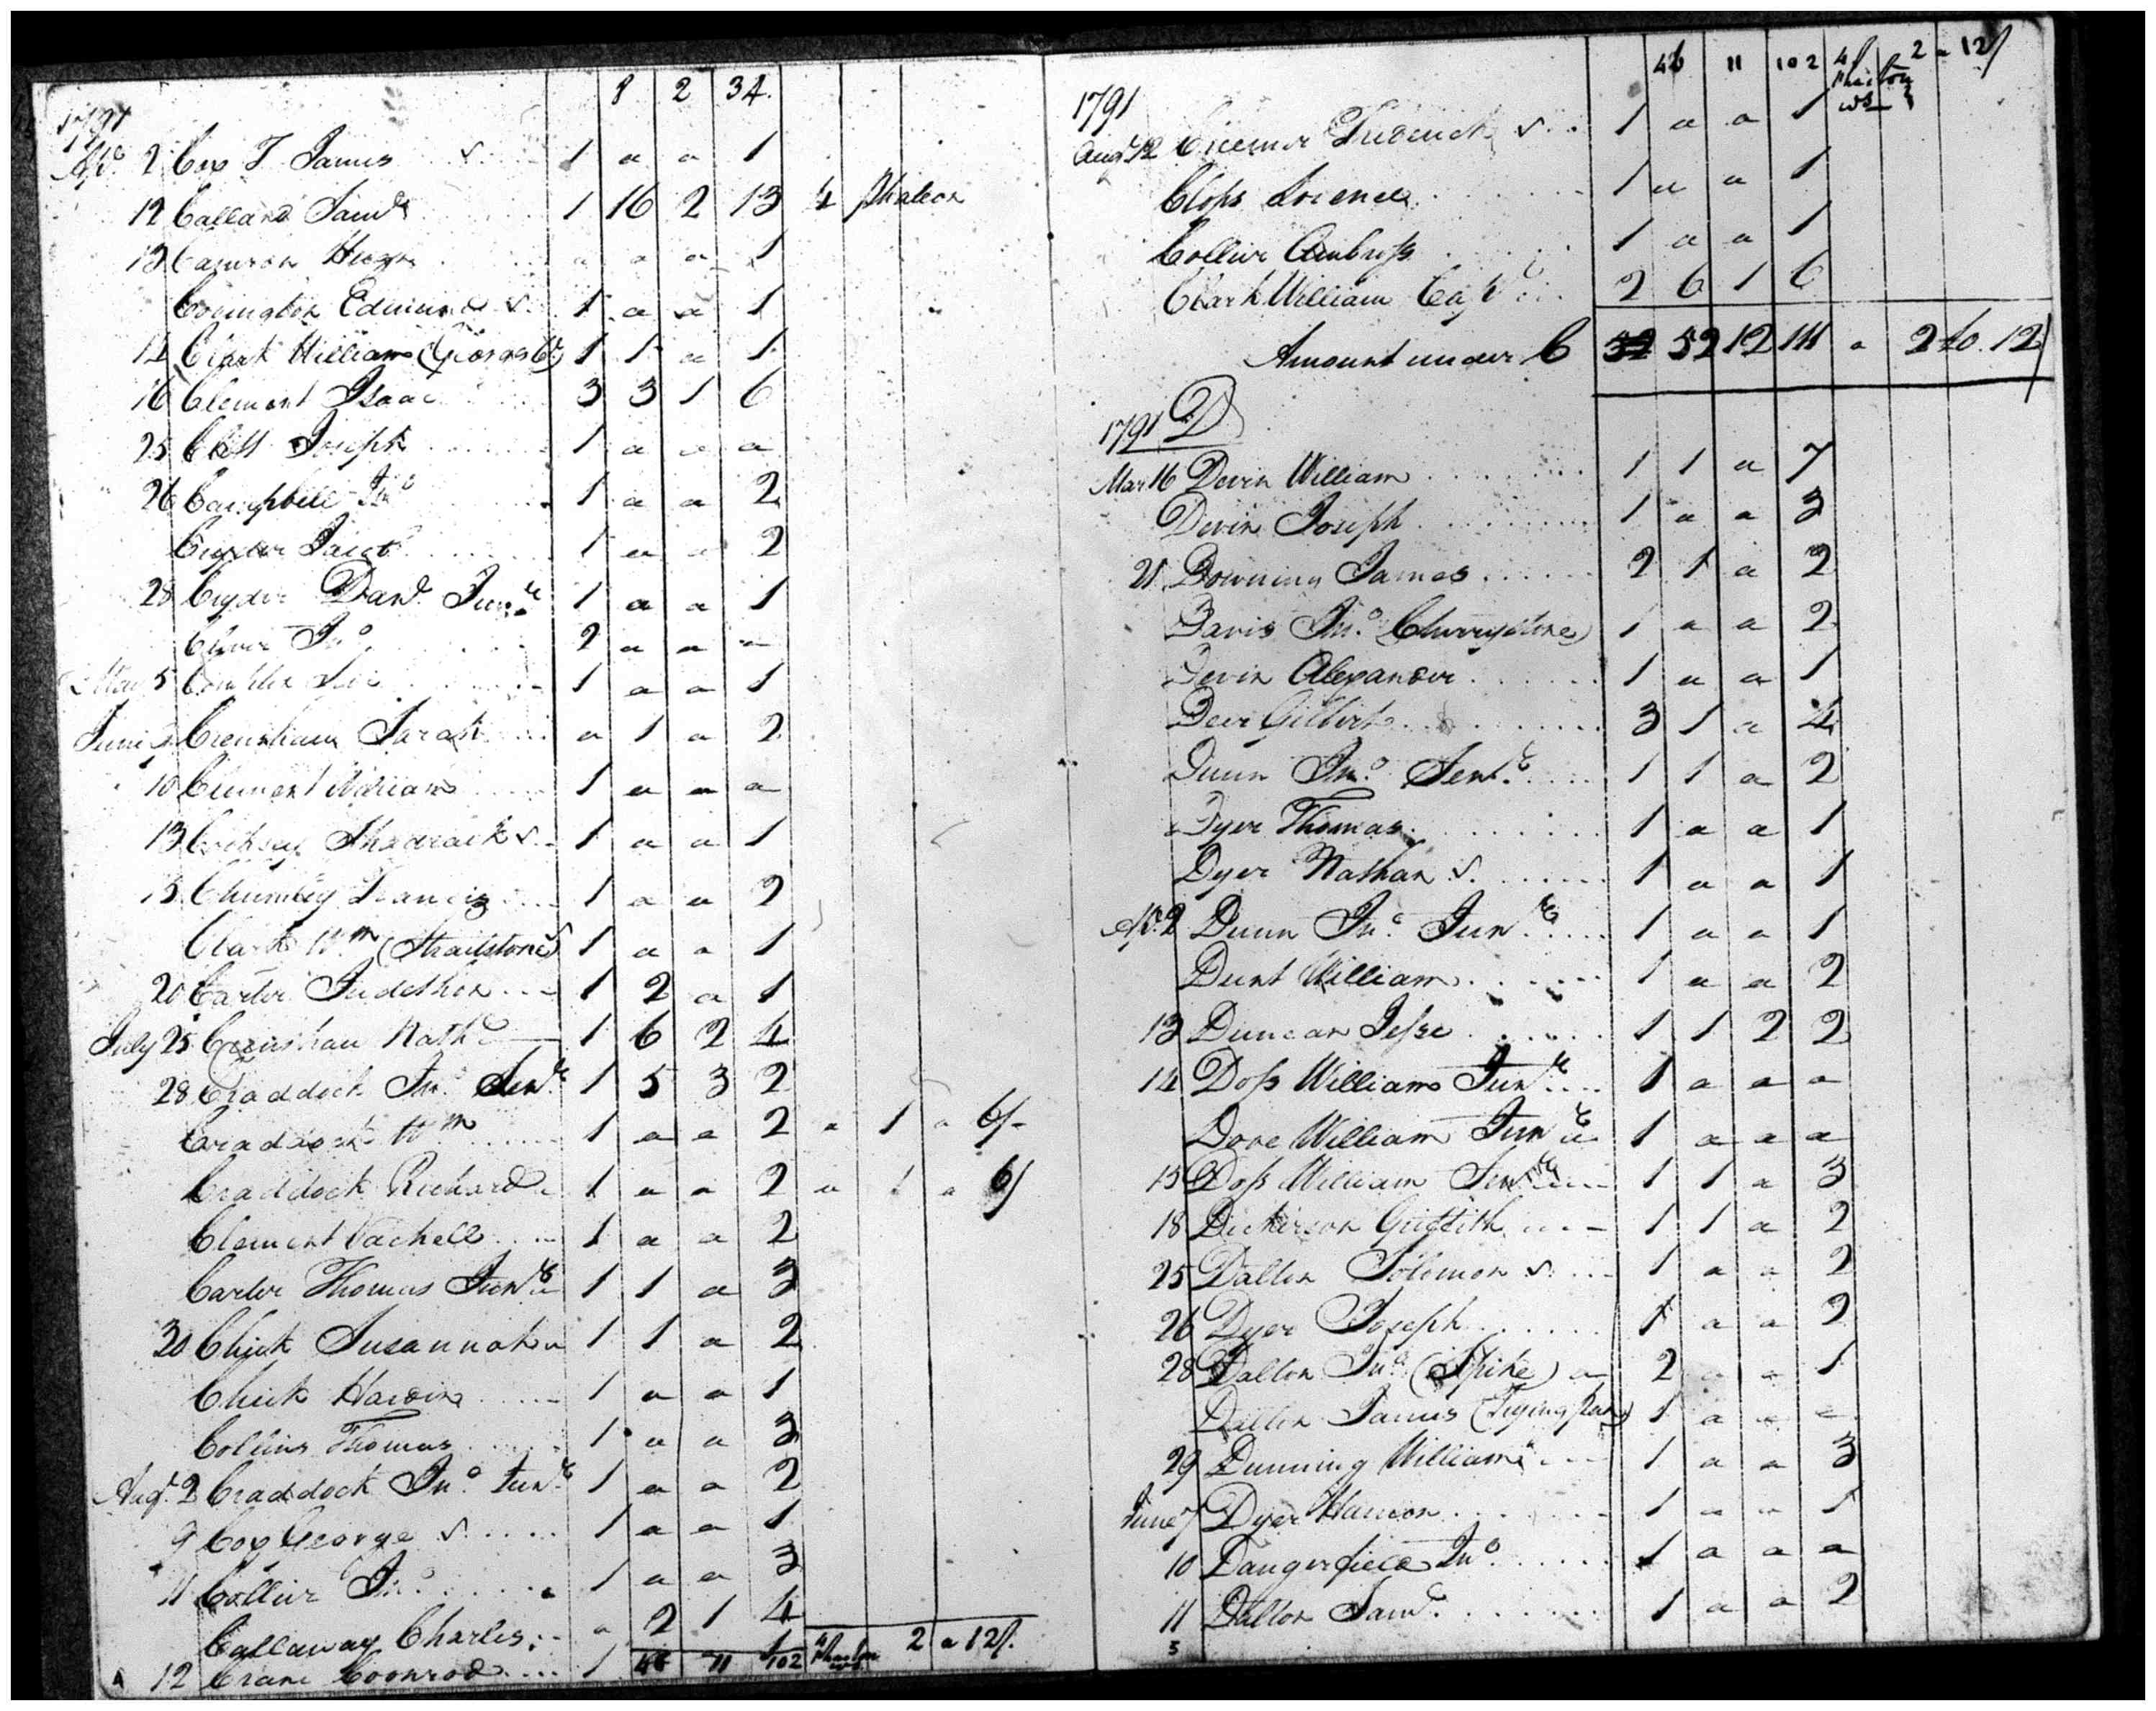 8 2 34
1791
Ap. 2 Cox T. James v. 1 a a 1
12 Calland Sam.l 1 16 2 13 4 phaleon
13 Camron Hugh a a a 1
Covington Edmund v. 1 a a 1
14 Clark William 1 1 a 1
16 Clement Isaac 3 3 1 6
25 Joseph 1 a a a
26 Campbell Jn.o 1 a a 2
Cryder Jacob 1 a a 2
28 Cryder Dan.l Jun.r 1 a a 1
Jn.o 2 a a a
May 5 1 a a 1
June Crenshaw Sarah a 1 a 2
10 Clement William 1 a a a
13 Shadrack v. 1 a a 1
15 Chumbley Francis 1 a a 2
Clark W.m (Strailstone) v 1 a a 1
20 Carter Judethon 1 2 a 1
July 25 Crenshaw Nath.l 1 6 2 4
28 Craddock Jn.o Sen.r 1 5 3 2
Craddock W.m 1 a a 2 a 1 a 6/-
Craddock Richard 1 a a 2 a 1 a 6/
Clement Vachell 1 a a 2
Carter Thomas Jun.r 1 1 a 3
30 Chick Susannah 1 1 a 2
Chick Hardin 1 a a 1
Collins Thomas 1 a a 3
Aug.t 2 Craddock Jn.o Jun.r 1 a a 2
9 Cox George v. 1 a a 1
11 Collier Jn.o 1 a a 3
Callaway Charles a 2 1 4
12 Crane Coonrod 1 1
46 11 102 4 Phaeton Ws 2 a 12/.
46 11 102 4 Phaeton Ws 2 a 12/
1791
Aug.t 12 v. 1 a a 1
Closs Lorence 1 a a 1
Collier Ambross 1 a a 1
Clark William Cap.t 2 6 1 6
Amount under C 52 52 12 111 a 2 to. 12/
1791 D
Mar 16 Devin William 1 1 a 7
Devin Joseph 1 a a 3
21 Downing James 2 1 a 2
Davis Jn.o (Cherrystone) 1 a a 2
Devin Alexander 1 a a 1
Deer Gilbert 3 1 a 4
Dunn Jn.o Sen.r 1 1 a 2
Dyer Thomas 1 a a 1
Dyer Nathan v. 1 a a 1
Ap. 2 Dunn Jn.o Jun.r 1 a a 1
Durt William 1 a a 2
13 Duncan Jesse 1 1 2 2
14 Doss William Jun.r 1 a a a
Dove William Jun.r 1 a a a
15 Doss William Sen.r 1 1 a 3
18 Dickerson Griffith 1 1 a 2
25 Dalton Solomon v. 1 a a 2
26 Dyer Joseph 1 a a 2
28 Dalton Jn.o (Spike) 2 a a 1
Dalton James (Frying pan) 1 a a a
29 Dunning William 1 a a 3
June 7 Dyer Hamon 1 a a 1
10 Dangerfield Jn.o 1 a a a
11 Dalton Sam.l 1 a a 2